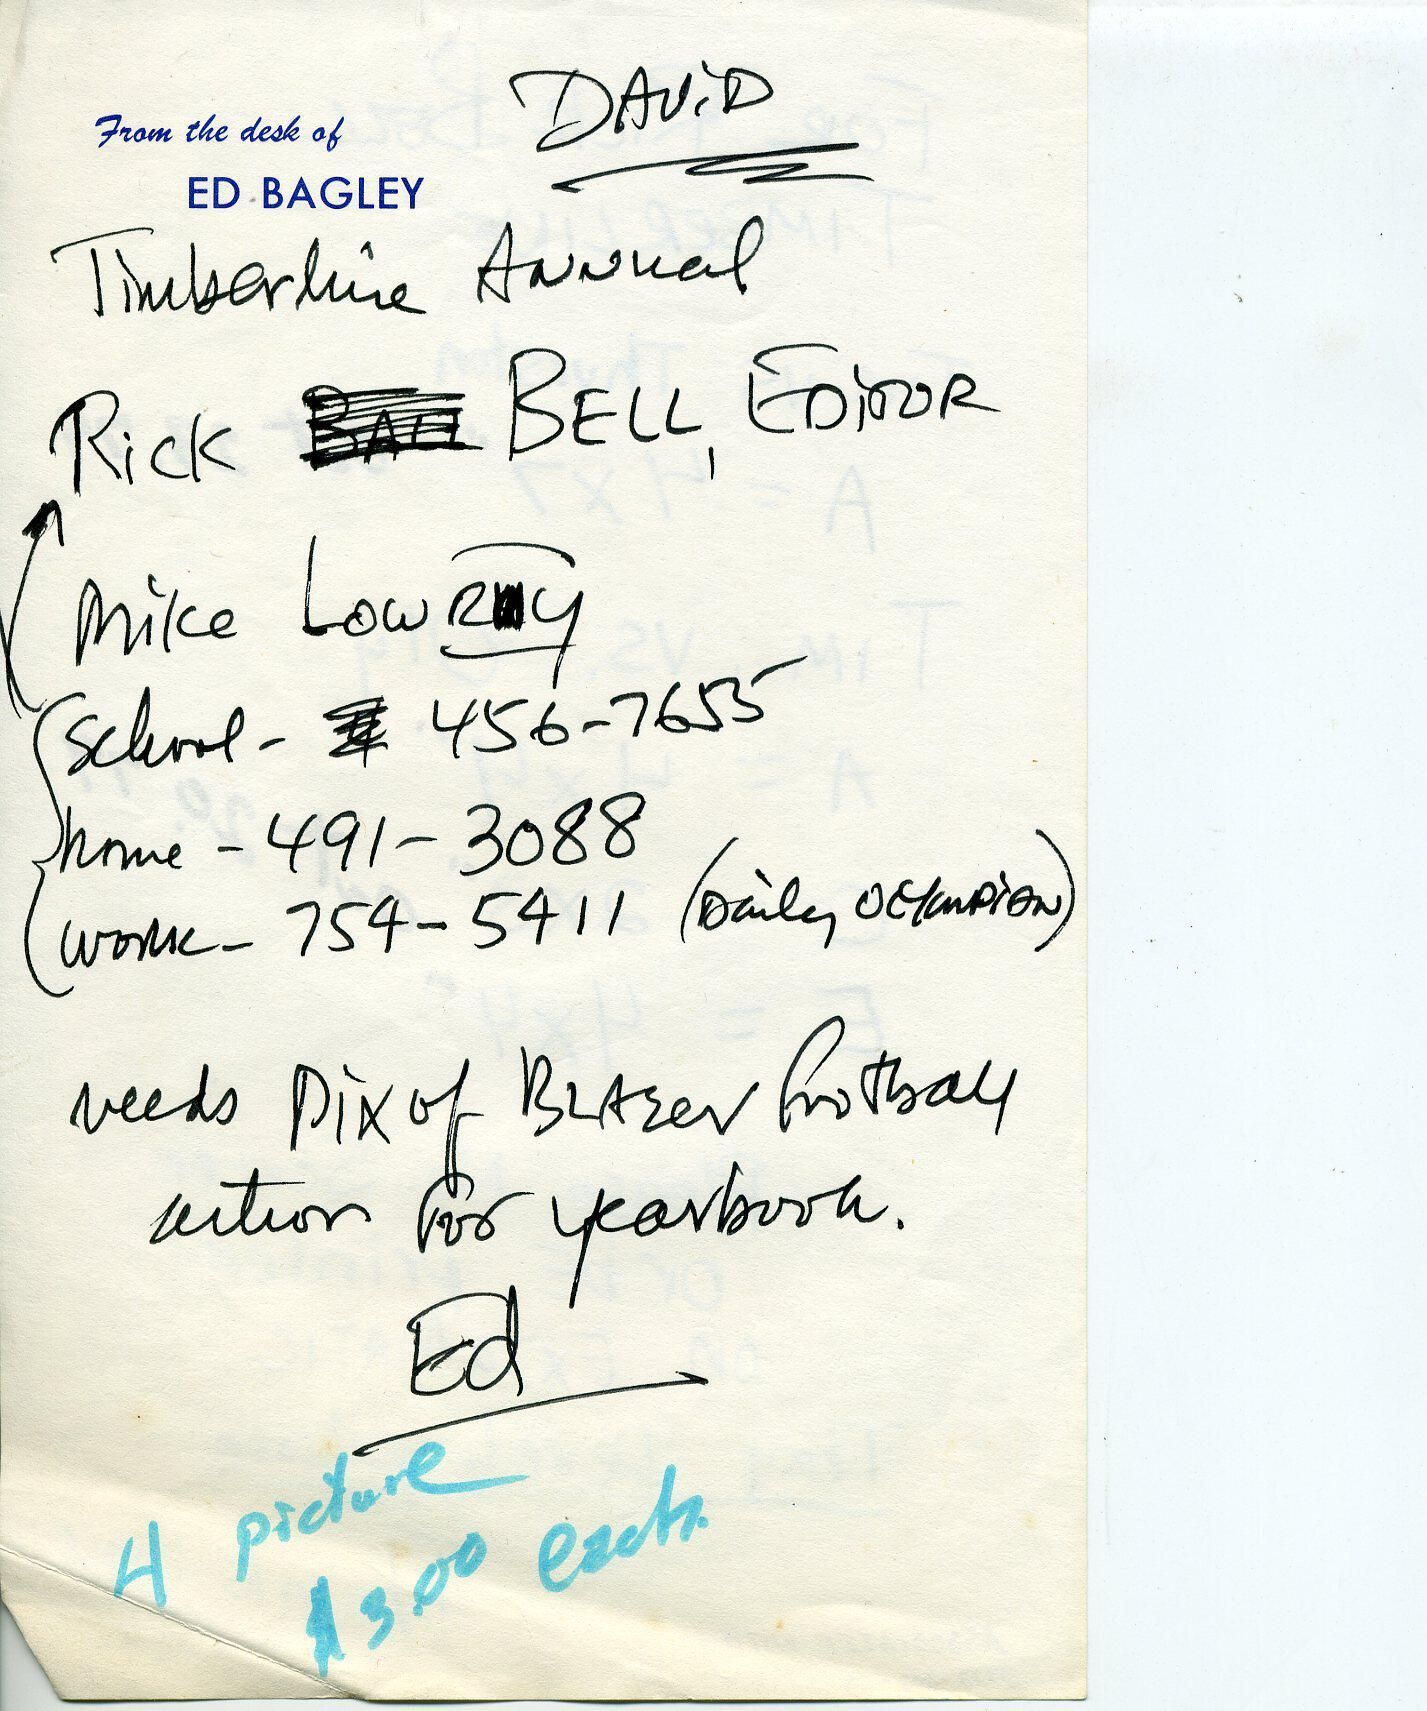 From the desk of
ED BAGLEY
DAViD
Timberline Annual
Rick BELL, EDiTOR
Mike LowRy
school - 456-7655
home - 491-3088
work - 754-5411 (Daily OLYMPiAN)
needs pix of BLAZER football
action for yearbook.
Ed
4 picture
$3.00 each.